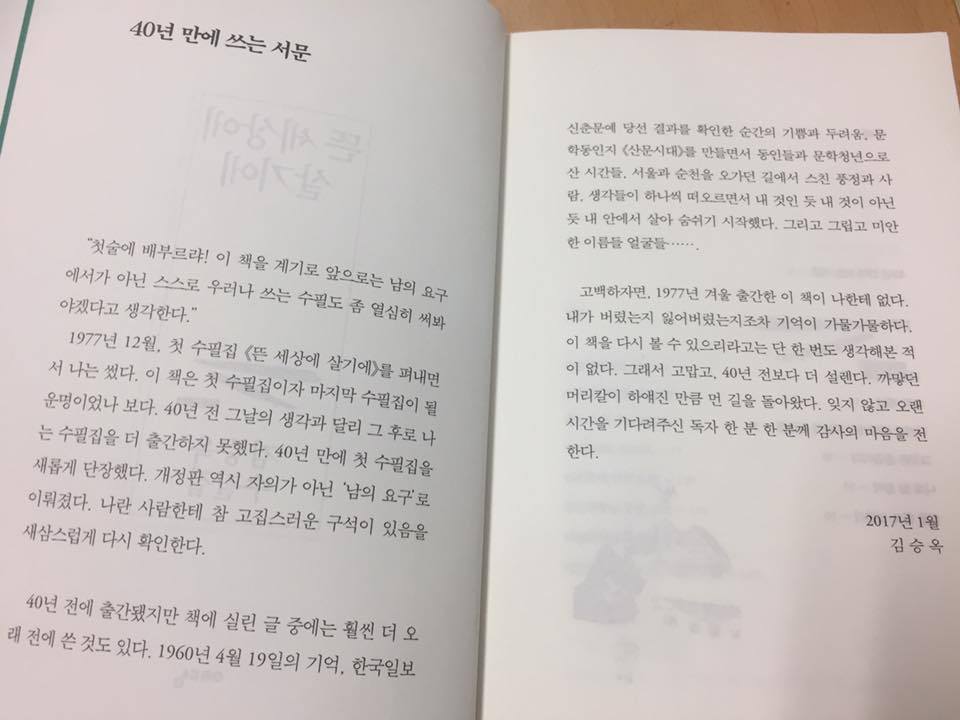 40년 만에 쓰는 서문
"첫술에 배부르랴! 이 책을 계기로 앞으로는 남의 요구
에서가 아닌 스스로 우러나 쓰는 수필도 좀 열심히 써봐
야겠다고 생각한다."
1977년 12월, 첫 수필집 《뜬 세상에 살기에》를 펴내면
서 나는 썼다. 이 책은 첫 수필집이자 마지막 수필집이 될
운명이었나 보다. 40년 전 그날의 생각과 달리 그 후로 나
는 수필집을 더 출간하지 못했다. 40년 만에 첫 수필집을
새롭게 단장했다. 개정판 역시 자의가 아닌 '남의 요구'로
이뤄졌다. 나란 사람한테 참 고집스러운 구석이 있음을
새삼스럽게 다시 확인한다.
40년 전에 출간됐지만 책에 실린 글 중에는 훨씬 더 오
래 전에 쓴 것도 있다. 1960년 4월 19일의 기억, 한국일보
신춘문예 당선 결과를 확인한 순간의 기쁨과 두려움, 문
학동인지 《산문시대》를 만들면서 동인들과 문학청년으로
산 시간들, 서울과 순천을 오가던 길에서 스친 풍정과 사
람, 생각들이 하나씩 떠오르면서 내 것인 듯 내 것이 아닌
듯 내 안에서 살아 숨쉬기 시작했다. 그리고 그립고 미안
한 이름들 얼굴들…….
고백하자면, 1977년 겨울 출간한 이 책이 나한테 없다.
내가 버렸는지 잃어버렸는지조차 기억이 가물가물하다.
이 책을 다시 볼 수 있으리라고는 단 한 번도 생각해본 적
이 없다. 그래서 고맙고, 40년 전보다 더 설렌다. 까맣던
머리칼이 하얘진 만큼 먼 길을 돌아왔다. 잊지 않고 오랜
시간을 기다려주신 독자 한 분 한 분께 감사의 마음을 전
한다.
2017년 1월
김승옥